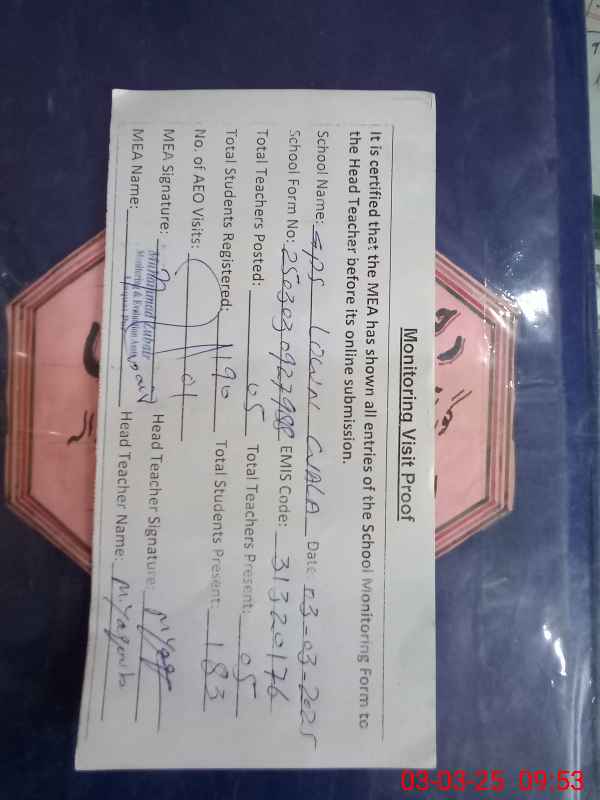 Monitoring Visit Proof
It is certified that the MEA has shown all entries of the School Monitoring Form to
the Head Teacher before its online submission.
School Name: GPS WALA Date 03-03-2025
School Form No: 2503030927988 EMIS Code: 31320176
Total Teachers Posted: 05 Total Teachers Present: 05
Total Students Registered: 190 Total Students Present: 183
No. of AEO Visits: 01
MEA Signature: Head Teacher Signature:
Muhammad Zubair
Monitoring & Evaluation Assistant
MEA Name: Head Teacher Name: M.
03-03-25 09:53